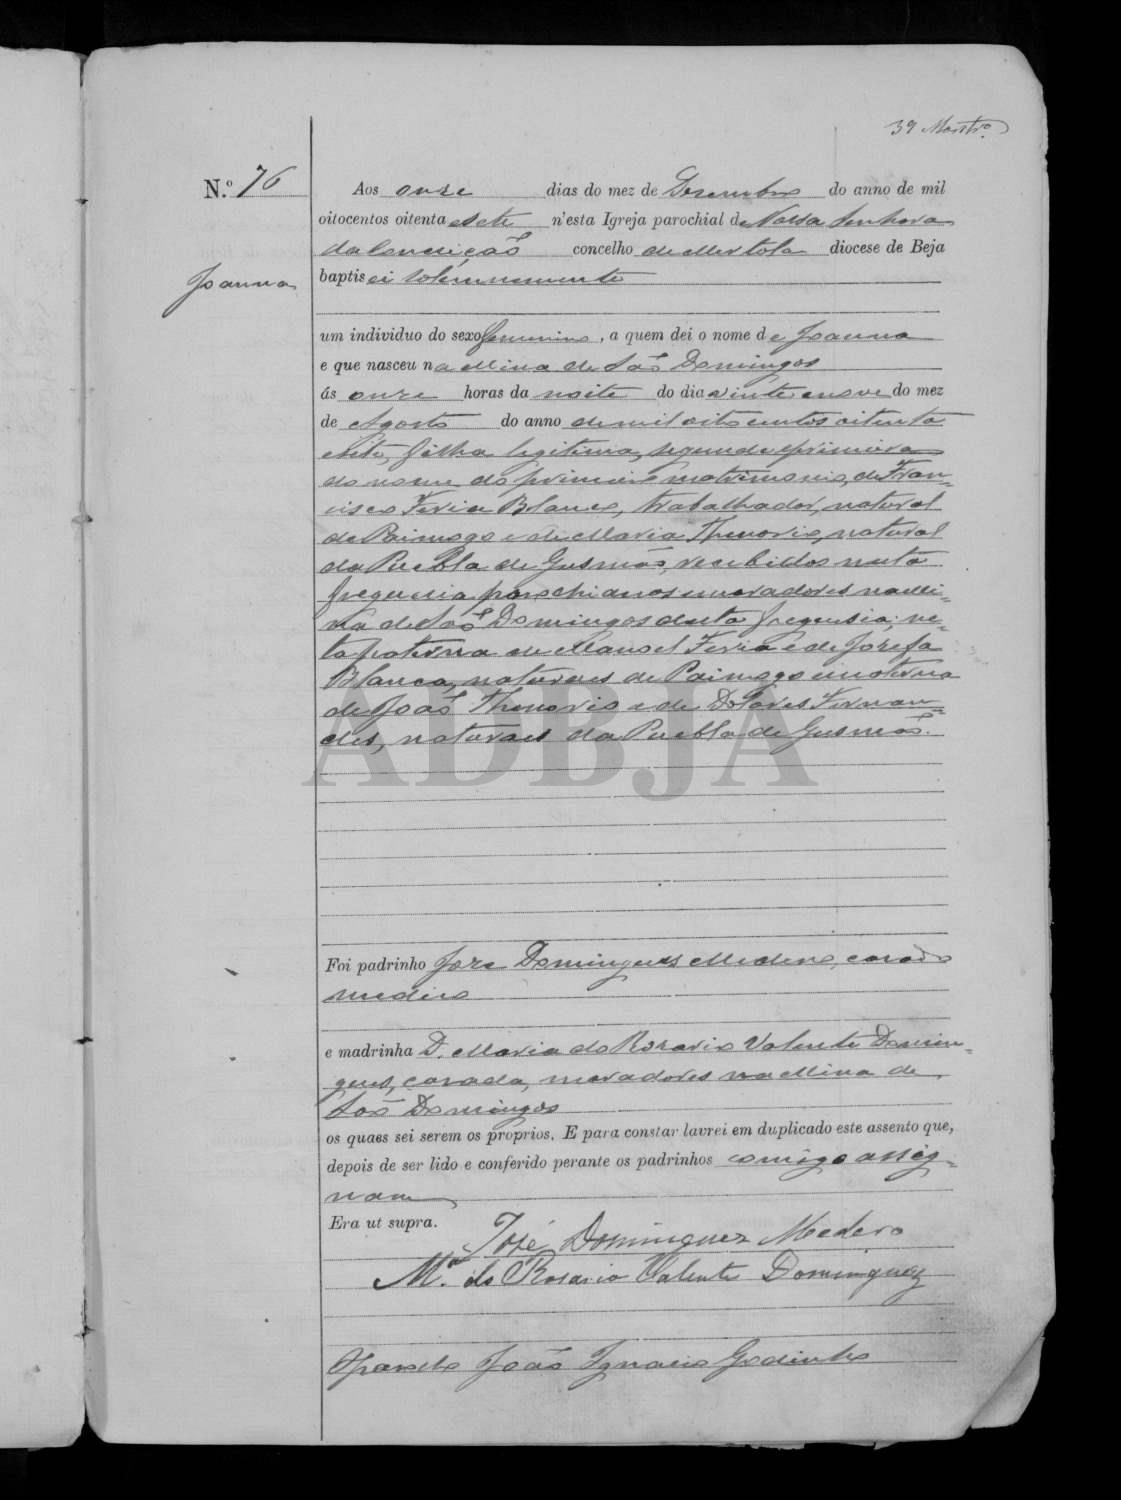 39 Montrº
N.º 76
Aos onze dias do mez de Dezembro do anno de mil
oitocentos oitenta e sete n'esta Igreja parochial de Nossa Senhora
da Conceição concelho de Mertola diocese de Beja
Joanna
baptisei solemnemente
um individuo do sexo femenino, a quem dei o nome de Joanna
e que nasceu na Mina de São Domingos
ás onze horas da noite do dia vinte e nove do mez
de Agosto do anno de mil oito centos oitenta
e sete, filha legitima, segunda e primeira
do nome do primeiro matrimonio, de Fran-
cisco Feria Blanco, trabalhador, natural
de Paimogo e de Maria Thenorio, natural
da Puebla de Gusmão, recebidos nesta
freguesia parochianos e moradores na Mi-
na de São Domingos desta freguesia; ne-
ta paterna de Manoel Feria e de Josefa
Blanca, naturaes de Paimogo e materna
de João Thenorio e de Dolores Fernan-
des, naturaes da Puebla de Gusmão.
ADBJA
Foi padrinho José Domingues Medero, casado
medico
e madrinha D. Maria do Rozario Valente Domin-
gues, casada, moradores na Mina de
São Domingos
os quaes sei serem os proprios. E para constar lavrei em duplicado este assento que,
depois de ser lido e conferido perante os padrinhos comigo assig-
nam
Era ut supra.
José Dominguez Medero
Mª. do Rosario Valente Dominguez
O Parocho João Ignacio Godinho